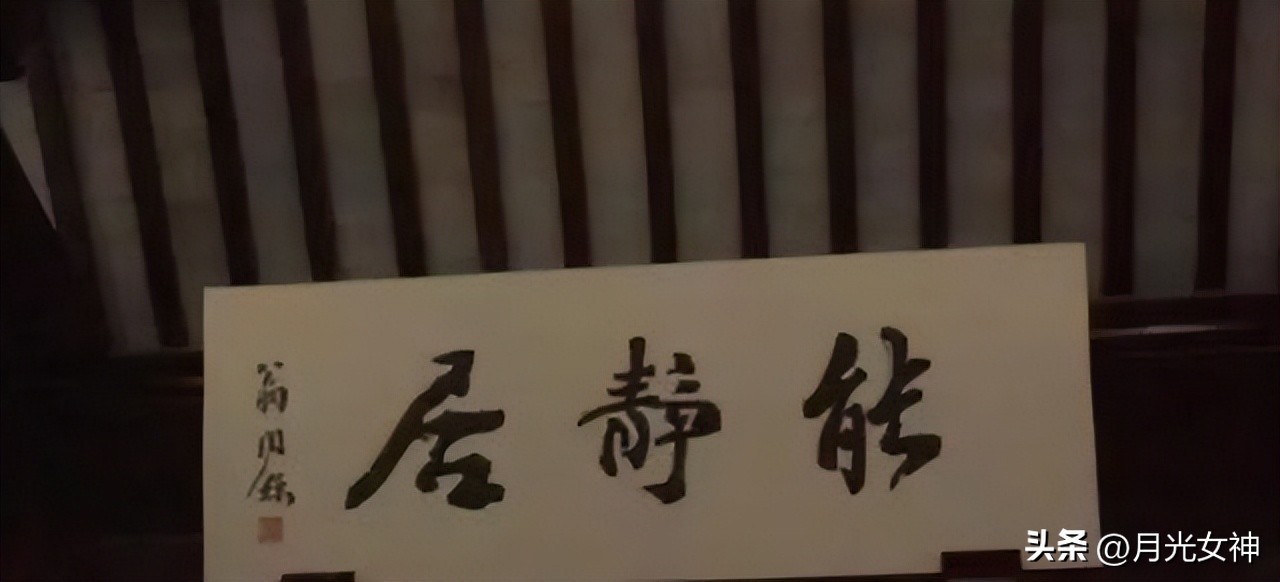 能靜居
翁同龢
头条 @月光女神